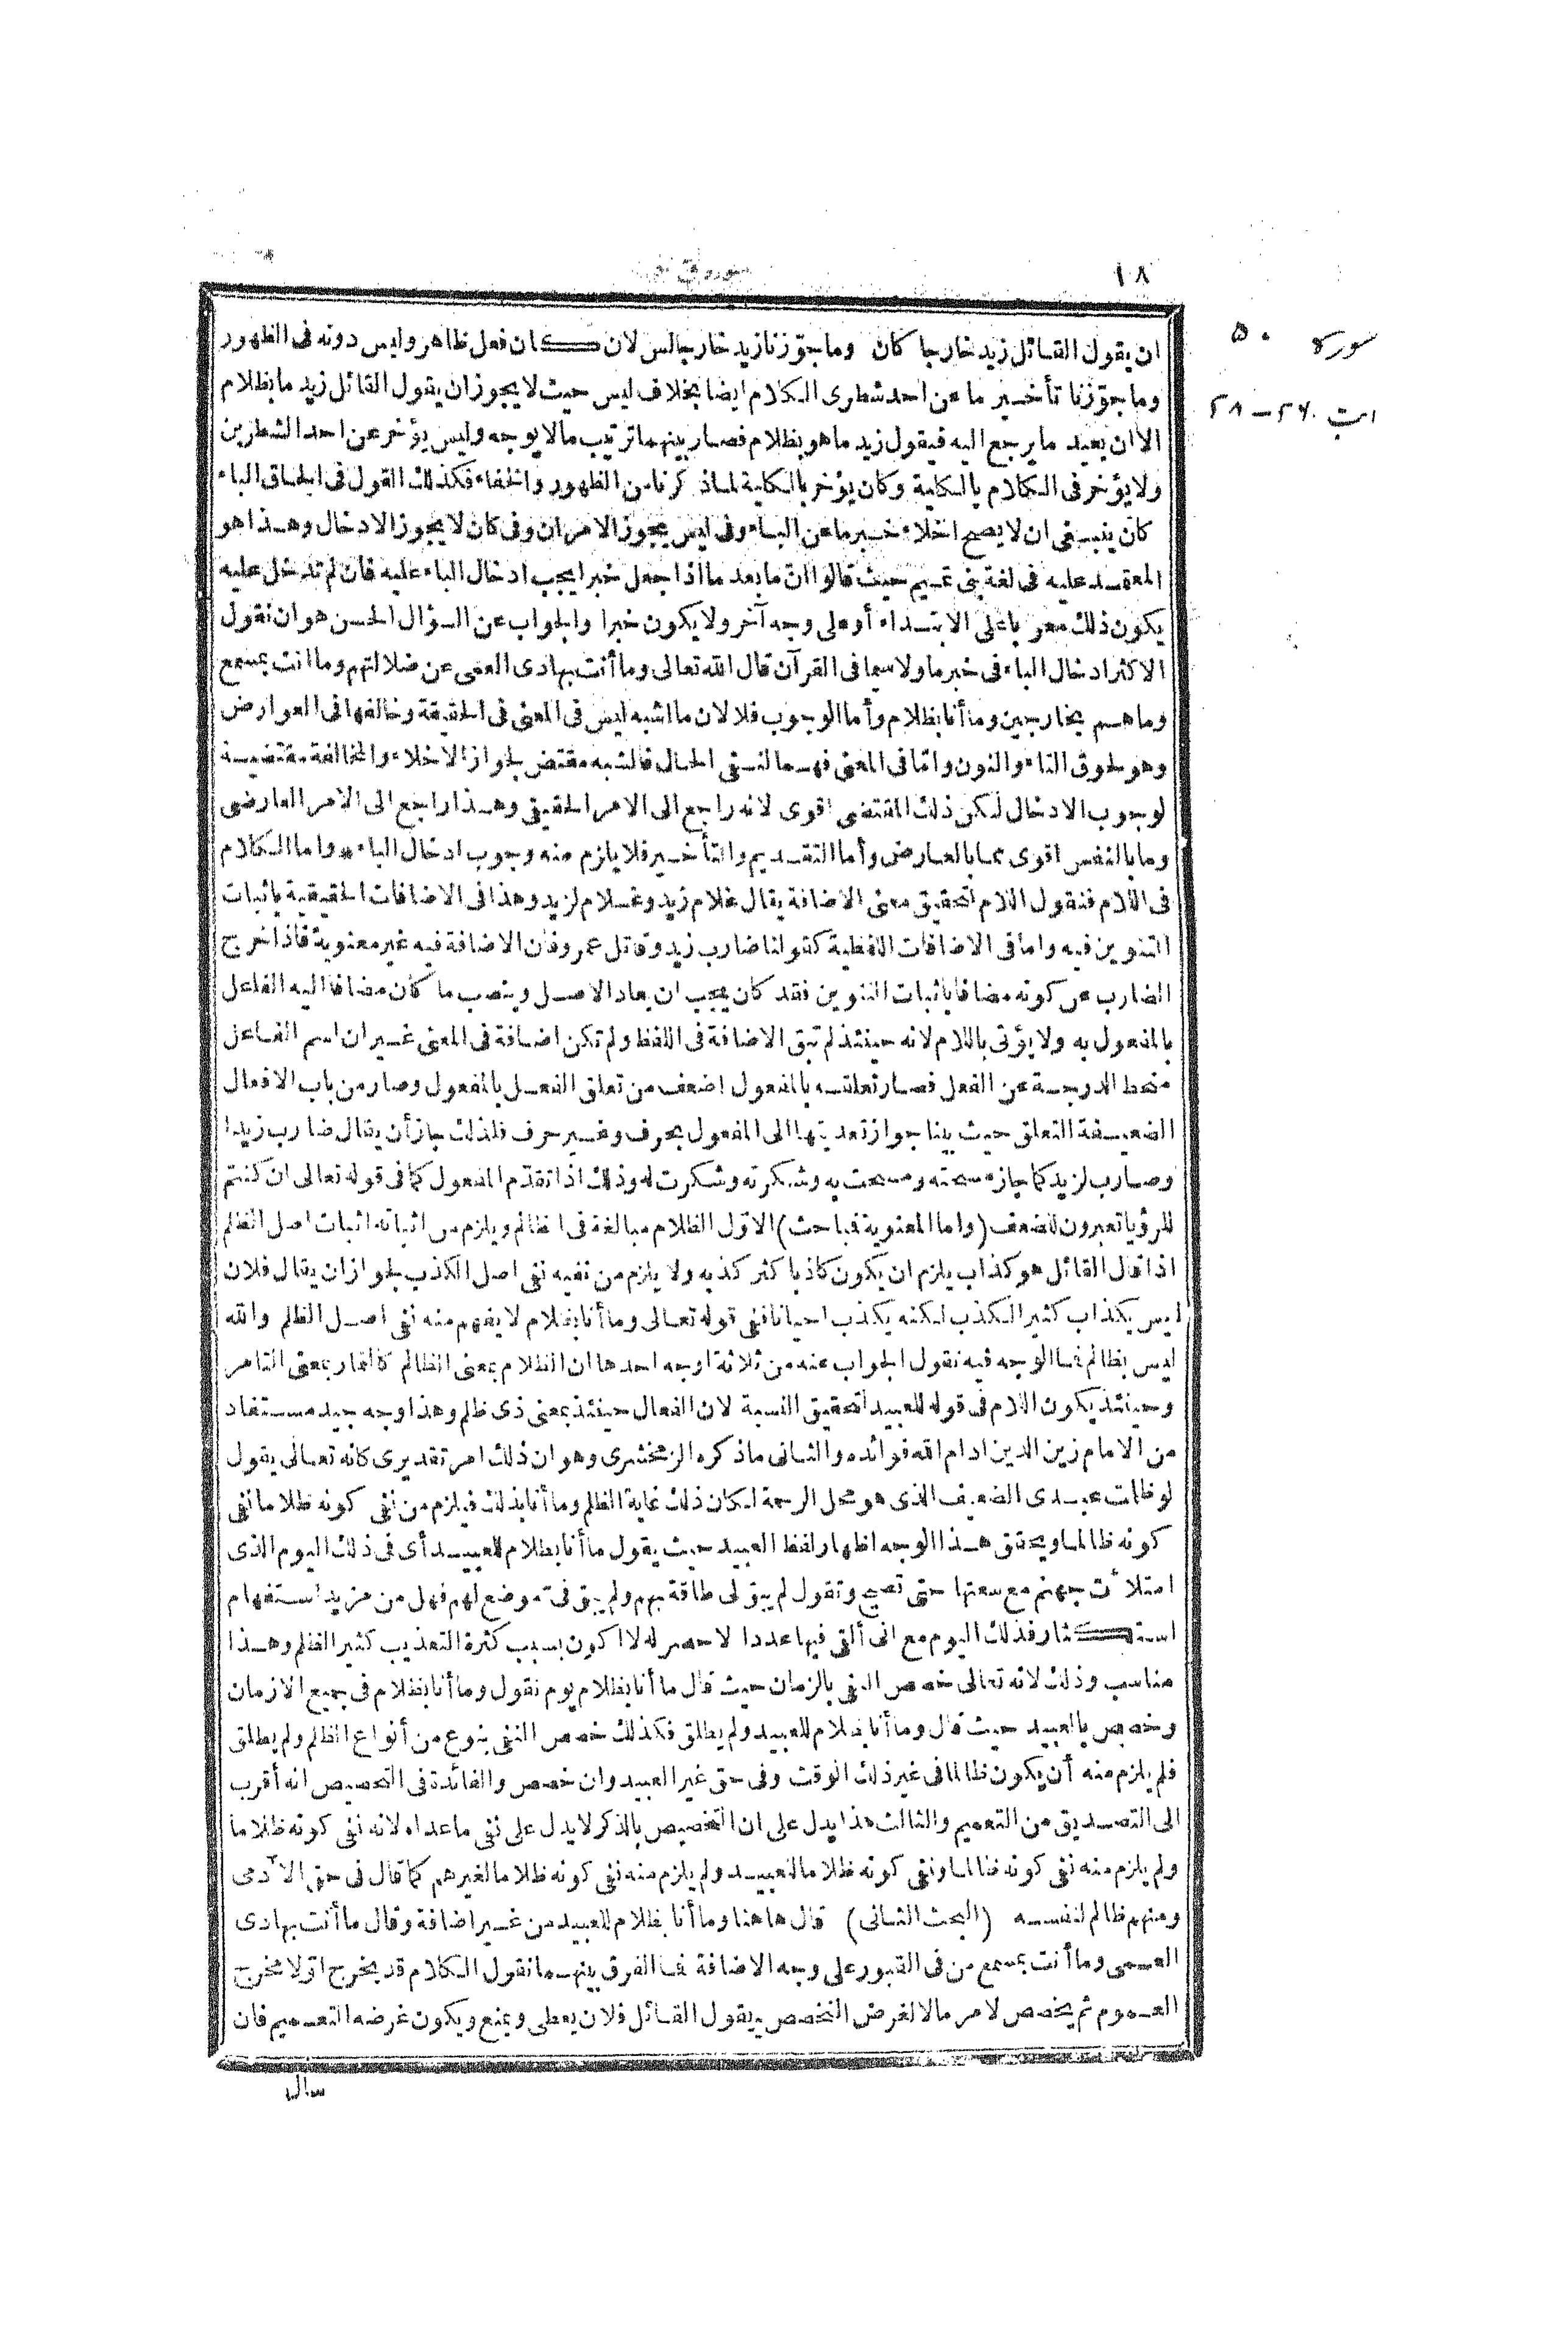 ١٨
سورة ق
سورہ ٥٠
ان يقول القائل زيد خارجا كان وما جوّزنا زيد خارجا ليس لان كان فعل ظاهر وليس دونه فى الظهور
وما جوّزنا تأخير ما عن احد شطرى الكلام ايضا بخلاف ليس حيث لا يجوز ان يقول القائل زيد ما بظلام
الا ان يعيد ما يرجع اليه فيقول زيد ما هو بظلام فصار بينهما ترتيب ما لا يوجه وليس يؤخر عن احد الشطرين
ولا يؤخر فى الكلام بالكلية وكان يؤخر بالكلية لما ذكرنا من الظهور والخفاء فكذلك القول فى الحاق الباء
كان ينبغى ان لا يصح اخلاء خبر ما عن الباء وفى ليس يجوز الامران وفى كان لا يجوز الادخال وهذا هو
المعتمد عليه فى لغة بنى تميم حيث قالوا انّ ما بعد ما اذا جعل خبرا يجب ادخال الباء عليه فان لم تدخل عليه
يكون ذلك معربا على الابتداء أو على وجه آخر ولا يكون خبرا والجواب عن السؤال الحسن هو ان نقول
الاكثر ادخال الباء فى خبر ما ولا سيما فى القرآن قال الله تعالى وما أنت بهادى العمى عن ضلالتهم وما انت بمسمع
وما هم بخارجين وما أنا بظلام وأما الوجوب فلا لان ما اشبه ليس فى المعنى فى الحقيقة وخالفها فى العوارض
وهو لحوق التاء والنون وامّا فى المعنى فهما لنفى الحال فالشبه مقتض لجواز الاخلاء والمخالفة مقتضية
لوجوب الادخال لكن ذلك المقتضى اقوى لانه راجع الى الامر الحقيقى وهذا راجع الى الامر العارضى
وما بالنفس اقوى مما بالعارض وأما التقديم والتأخير فلا يلزم منه وجوب ادخال الباء * واما الكلام
فى اللام فنقول اللام لتحقيق معنى الاضافة يقال غلام زيد وغلام لزيد وهذا فى الاضافات الحقيقية باثبات
التنوين فيه واما فى الاضافات اللفظية كقولنا ضارب زيد وقاتل عمرو فان الاضافة فيه غير معنوية فاذا خرج
الضارب عن كونه مضافا باثبات التنوين فقد كان يجب ان يعاد الاصل وينصب ما كان مضافا اليه الفاعل
بالمفعول به ولا يؤتى باللام لانه حينئذ لم تبق الاضافة فى اللفظ ولم تكن اضافة فى المعنى غير ان اسم الفاعل
منحط الدرجة عن الفعل فصار تعلقه بالمفعول اضعف من تعلق الفعل بالمفعول وصار من باب الافعال
الضعيفة التعلق حيث بينا جواز تعديتها الى المفعول بحرف وغير حرف فلذلك جاز أن يقال ضارب زيدا
وضارب لزيد كما جاز مسحته ومسحت به وشكرته وشكرت له وذلك اذا تقدّم المفعول كما فى قوله تعالى ان كنتم
للرؤيا تعبرون للضعف (واما المعنوية فمباحث) الاوّل الظلام مبالغة فى الظالم ويلزم من اثباته اثبات اصل الظلم
اذا قال القائل هو كذاب يلزم ان يكون كاذبا كثر كذبه ولا يلزم من نفيه نفى اصل الكذب لجواز ان يقال فلان
ليس بكذاب كثير الكذب لكنه يكذب احيانا ففى قوله تعالى وما أنا بظلام لا يفهم منه نفى اصل الظلم والله
ليس بظالم فما الوجه فيه نقول الجواب عنه من ثلاثة اوجه احدها ان الظلام بمعنى الظالم كالتمار بمعنى التامر
وحينئذ يكون اللام فى قوله للعبيد لتحقيق النسبة لان الفعال حينئذ بمعنى ذى ظلم وهذا وجه جيد مستفاد
من الامام زين الدين ادام الله فوائده والثانى ما ذكره الزمخشرى وهو ان ذلك امر تقديرى كانه تعالى يقول
لو ظلمت عبدى الضعيف الذى هو محل الرحمة لكان ذلك غاية الظلم وما أنا بذلك فيلزم من نفى كونه ظلاما نفى
كونه ظالما ويحقق هذا الوجه اظهار لفظ العبيد حيث يقول ما أنا بظلام للعبيد أى فى ذلك اليوم الذى
امتلأت جهنم مع سعتها حتى تصيح وتقول لم يبق لى طاقة بهم ولم يبق فىّ موضع لهم فهل من مزيد استفهام
استكثار فذلك اليوم مع انى ألقى فيها عددا لا حصر له لا اكون بسبب كثرة التعذيب كثير الظلم وهذا
مناسب وذلك لانه تعالى خصص النفى بالزمان حيث قال ما أنا بظلام يوم نقول وما أنا بظلام فى جميع الازمان
وخصص بالعبيد حيث قال وما أنا بظلام للعبيد ولم يطلق فكذلك خصص النفى بنوع من أنواع الظلم ولم يطلق
فلم يلزم منه أن يكون ظالما فى غير ذلك الوقت وفى حق غير العبيد وان خصص والفائدة فى التخصيص انه أقرب
الى التصديق من التعميم والثالث هذا يدل على ان التخصيص بالذكر لا يدل على نفى ما عداه لانه نفى كونه ظلاما
ولم يلزم منه نفى كونه ظالما ونفى كونه ظلاما للعبيد ولم يلزم منه نفى كونه ظلاما لغيرهم كما قال فى حق الآدمى
ومنهم ظالم لنفسه (البحث الثانى) قال هاهنا وما أنا بظلام للعبيد من غير اضافة وقال ما أنت بهادى
العمى وما أنت بمسمع من فى القبور على وجه الاضافة فما الفرق بينهما نقول الكلام قد يخرج اوّلا مخرج
العموم ثم يخصص لامر ما لا لغرض التخصيص يقول القائل فلان يعطى ويمنع ويكون غرضه التعميم فان
سال